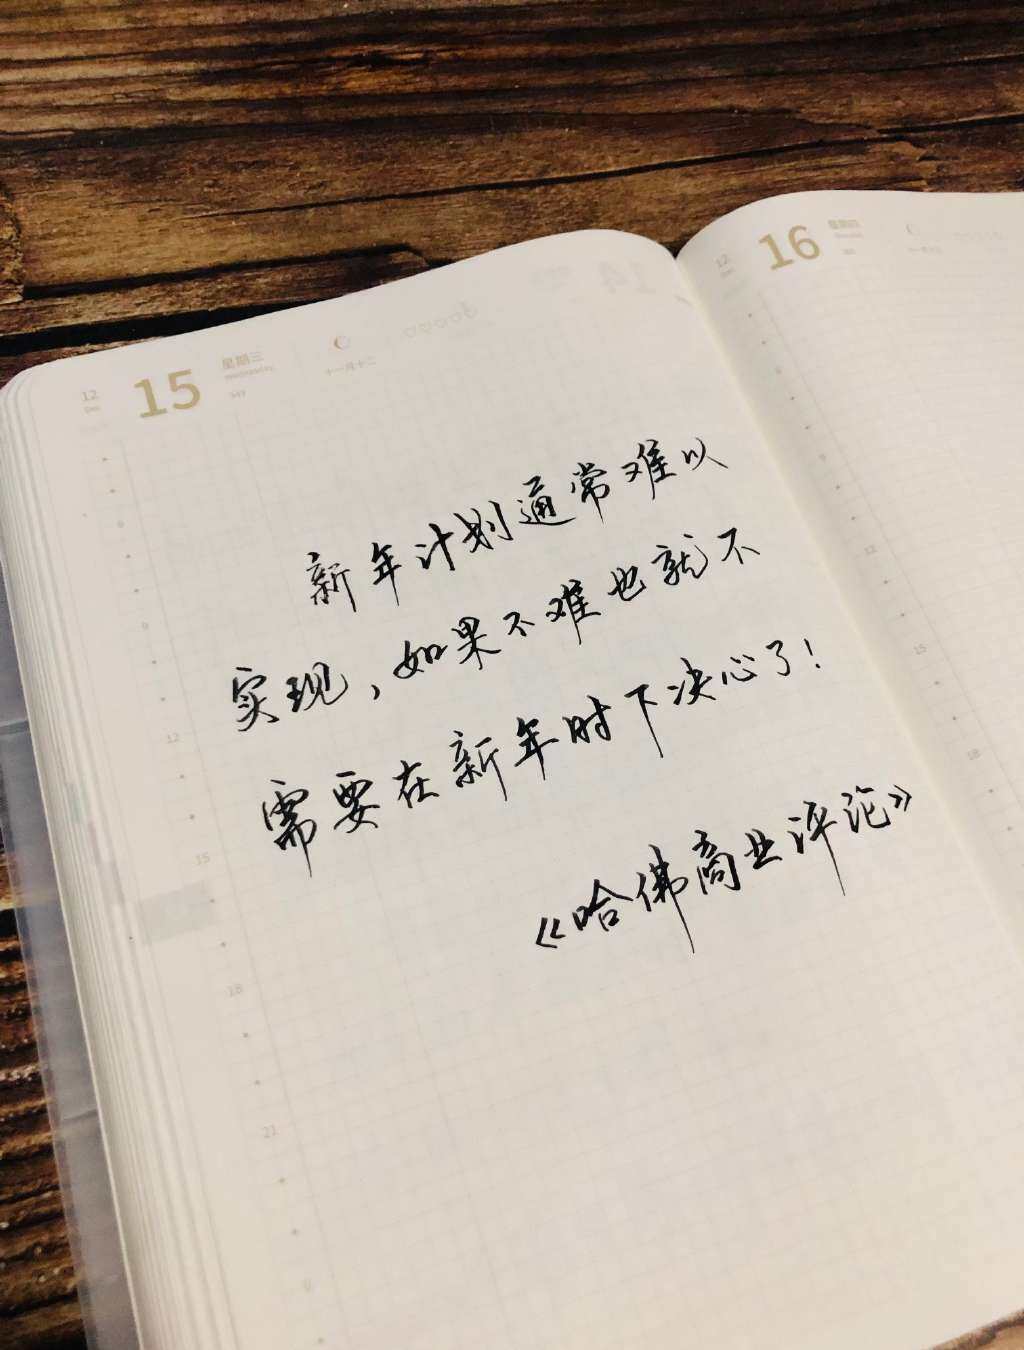 12
Dec
15
星期三
Wednesday
十一月十二
新年计划通常难以
实现，如果不难也就不
需要在新年时下决心了！
《哈佛商业评论》
9
12
15
18
21
0
12
16
星期四
12
15
18